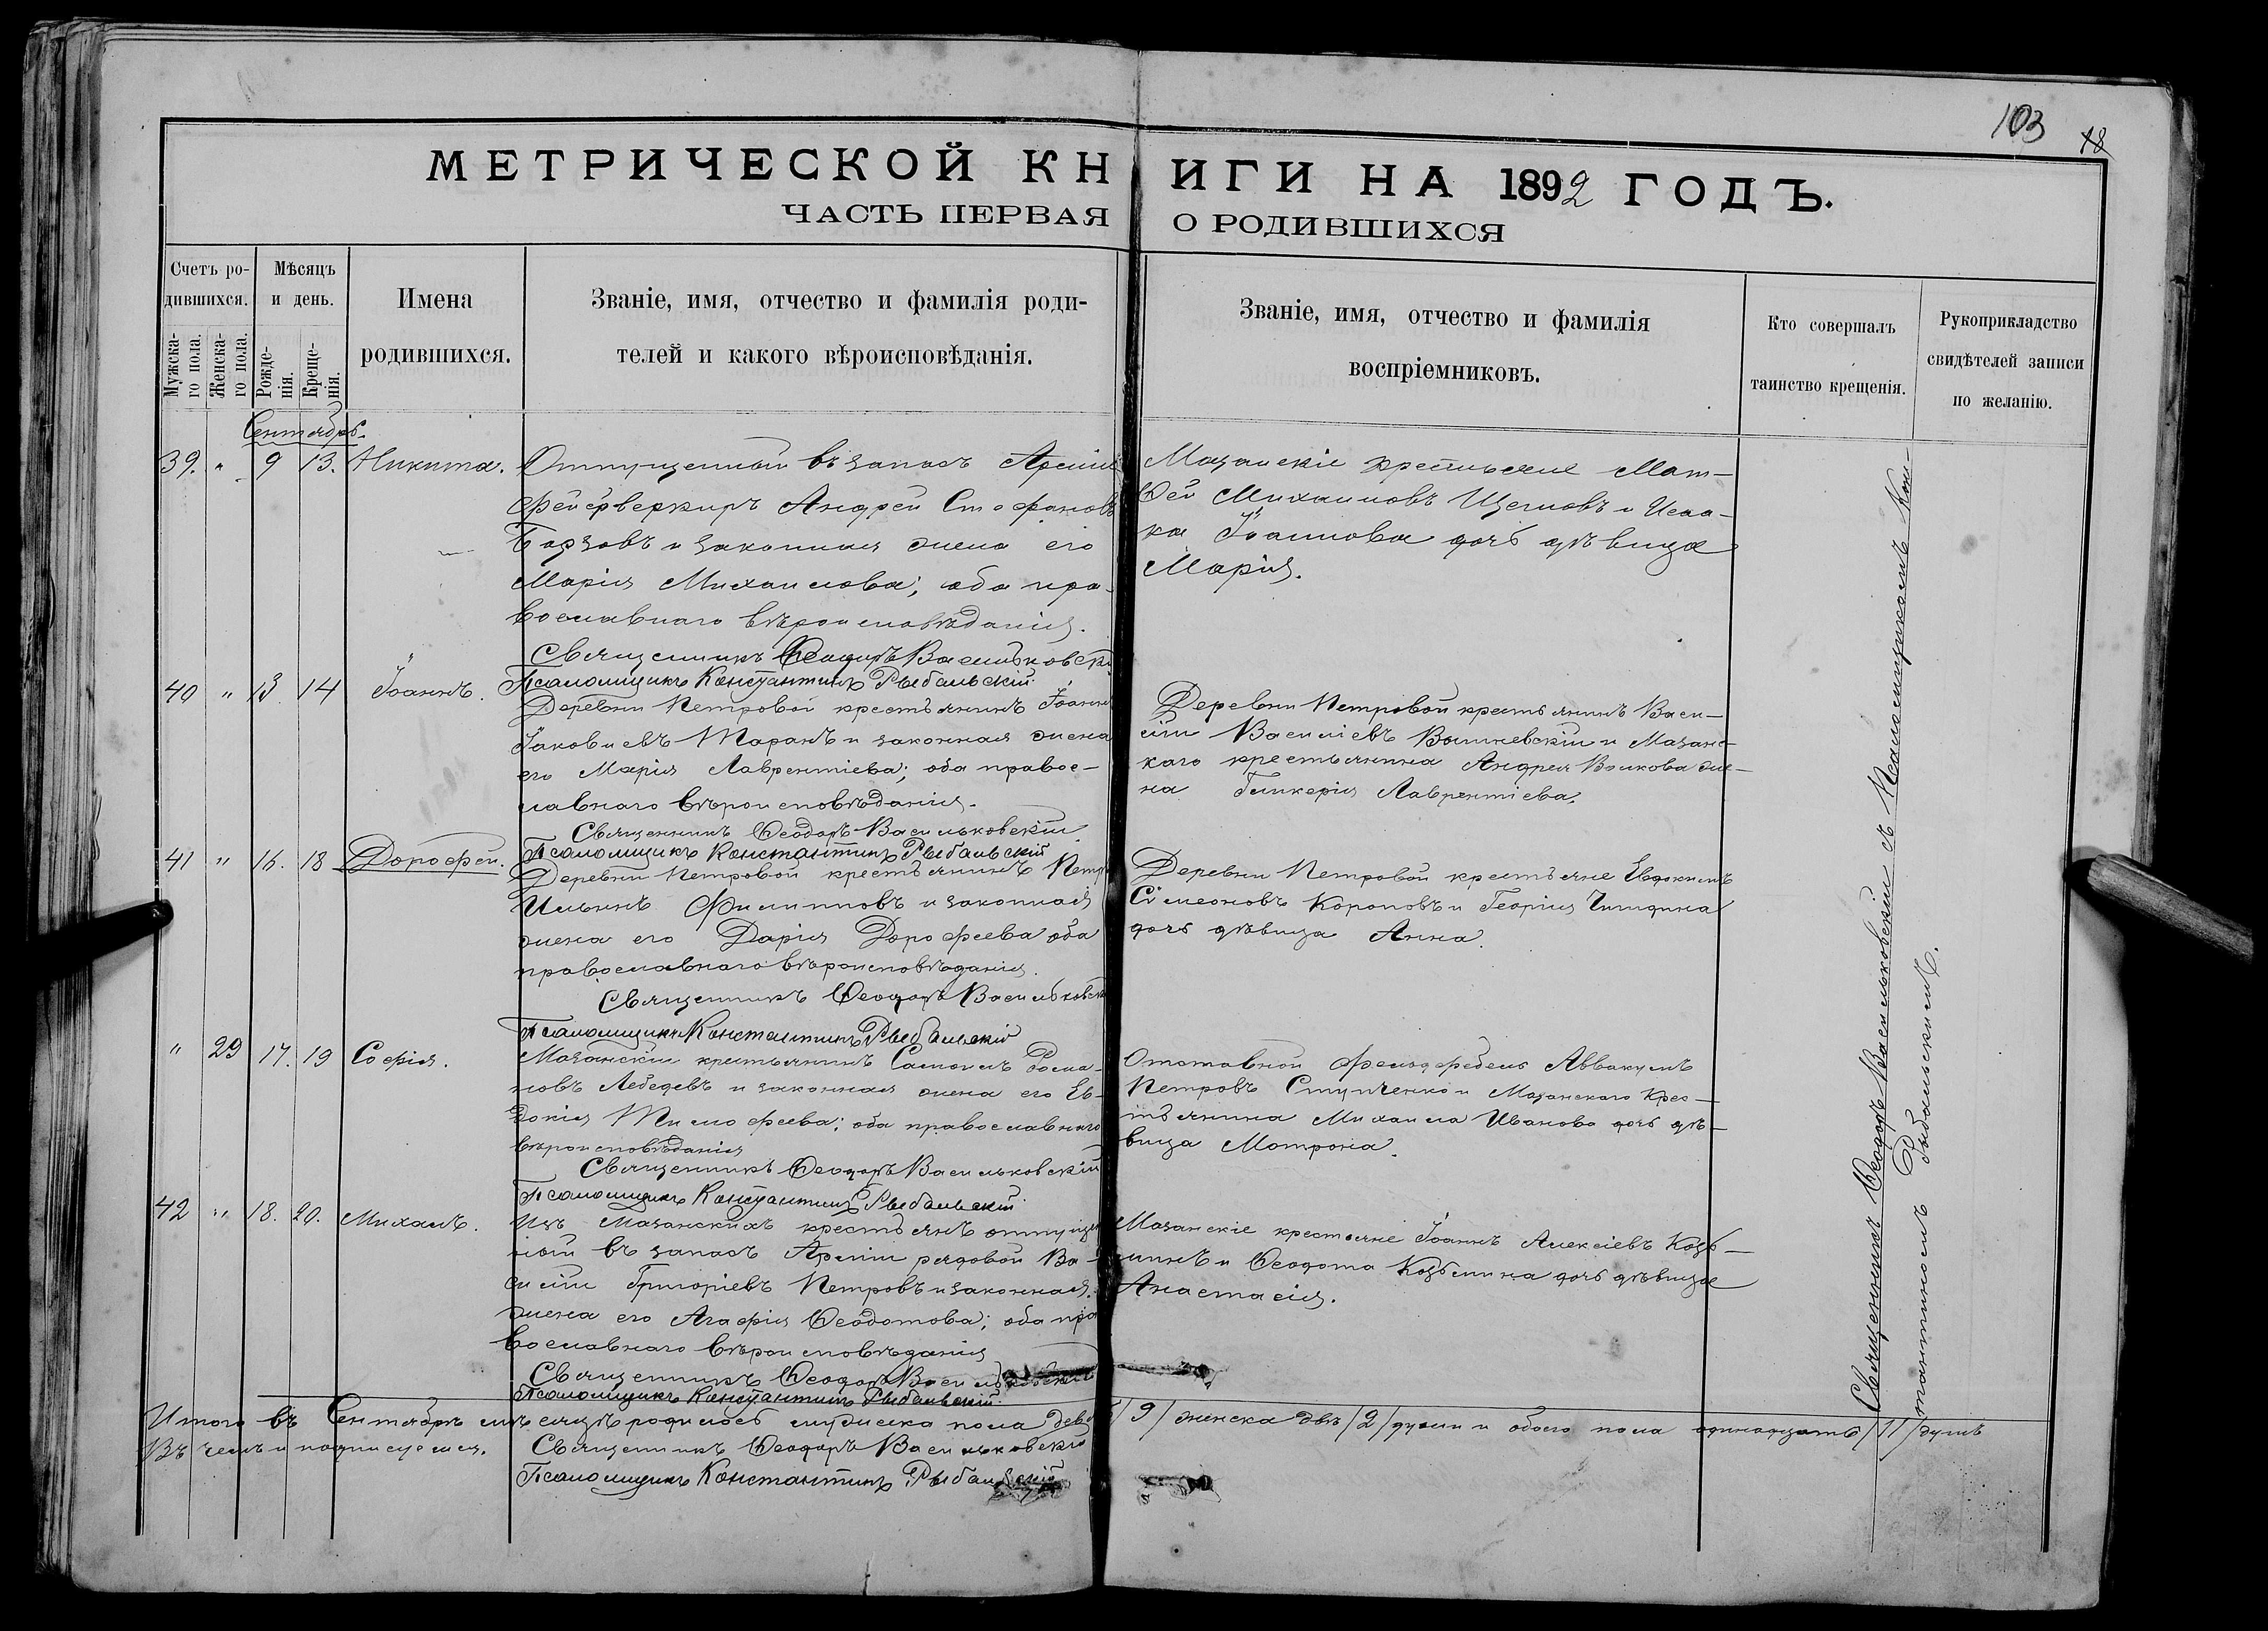 103
18
МЕТРИЧЕСКОЙ КНИГИ НА 1892 ГОДЪ.
ЧАСТЬ ПЕРВАЯ О РОДИВШИХСЯ
Счетъ ро-
дившихся.
Мужска-
го пола.
Женска-
го пола.
Мѣсяцъ
и день.
Рожде-
нія.
Креще-
нія.
Имена
родившихся.
Званіе, имя, отчество и фамилія роди-
телей и какого вѣроисповѣданія.
Званіе, имя, отчество и фамилія
воспріемниковъ.
Кто совершалъ
таинство крещенія.
Рукоприкладство
свидѣтелей записи
по желанію.
Сентябрь.
39. " 9 13. Никита.
Отпущенный въ запасъ Арміи
фейерверкиръ Андрей Стефановъ
Борзовъ и законная жена его
Марія Михаилова; оба пра-
вославнаго вѣроисповѣданія.
Священникъ Ѳеодоръ Васильковскій
Псаломщикъ Константинъ Рыбальскій
Мазанскіе крестьяне Мат-
ѳей Михаиловъ Щегловъ и
Іоаннова дочь дѣвица
Марія.
40 " 13 14 Іоаннъ.
Деревни Петровой крестьянинъ Іоаннъ
Іаковлевъ Таранъ и законная жена
его Марія Лаврентіева; оба правос-
лавнаго вѣроисповѣданія.
Священникъ Ѳеодоръ Васильковскій
Псаломщикъ Константинъ Рыбальскій
Деревни Петровой крестьянинъ Васи-
лій Василіевъ Вышневскій и Мазанс-
каго крестьянина Андрея Волкова же-
на Гликерія Лаврентіева.
41 " 16. 18 Дорофей.
Деревни Петровой крестьянинъ Петръ
Ильинъ Филипповъ и законная
жена его Дарія Дорофеева оба
православнаго вѣроисповѣданія.
Священникъ Ѳеодоръ Васильковскій
Псаломщикъ Константинъ Рыбальскій
Деревни Петровой крестьяне Евдокимъ
Сѵмеоновъ Короповъ и Георгія
дочь дѣвица Анна.
" 29 17. 19 Софія.
Мазанскій крестьянинъ Самоилъ Рома-
новъ Лебедевъ и законная жена его Ев-
докія Тимофеева; оба православнаго
вѣроисповѣданія
Священникъ Ѳеодоръ Васильковскій
Псаломщикъ Константинъ Рыбальскій
Отставной фельдфебель Аввакумъ
Петровъ Ступченко и Мазанскаго крес-
тьянина Михаила Иванова дочь дѣ-
вица Матрона.
42 " 18. 20. Михаилъ.
Изъ Мазанскихъ крестьянъ отпущен-
ный въ запасъ Арміи рядовой Ва-
силій Григоріевъ Петровъ и законная
жена его Агафія Ѳеодотова; оба пра
вославнаго вѣроисповѣданія
Священникъ Ѳеодоръ Васильковскій
Псаломщикъ Константинъ Рыбальскій
Мазанскіе крестьяне Іоаннъ Алексіевъ Козь-
минъ и Ѳеодота Козьмина дочь дѣвица
Анастасія.
Итого въ Сентябрѣ мѣсяцѣ родилось мужеска пола девять /9/ женска двѣ /2/ души и обоего пола одинадцать /11/ душъ
Въ чемъ и подписуемся.
Священникъ Ѳеодоръ Васильковскій
Псаломщикъ Константинъ Рыбальскій
Священникъ Ѳеодоръ Васильковскій съ Псаломщикомъ Кон-
стантиномъ Рыбальскимъ.